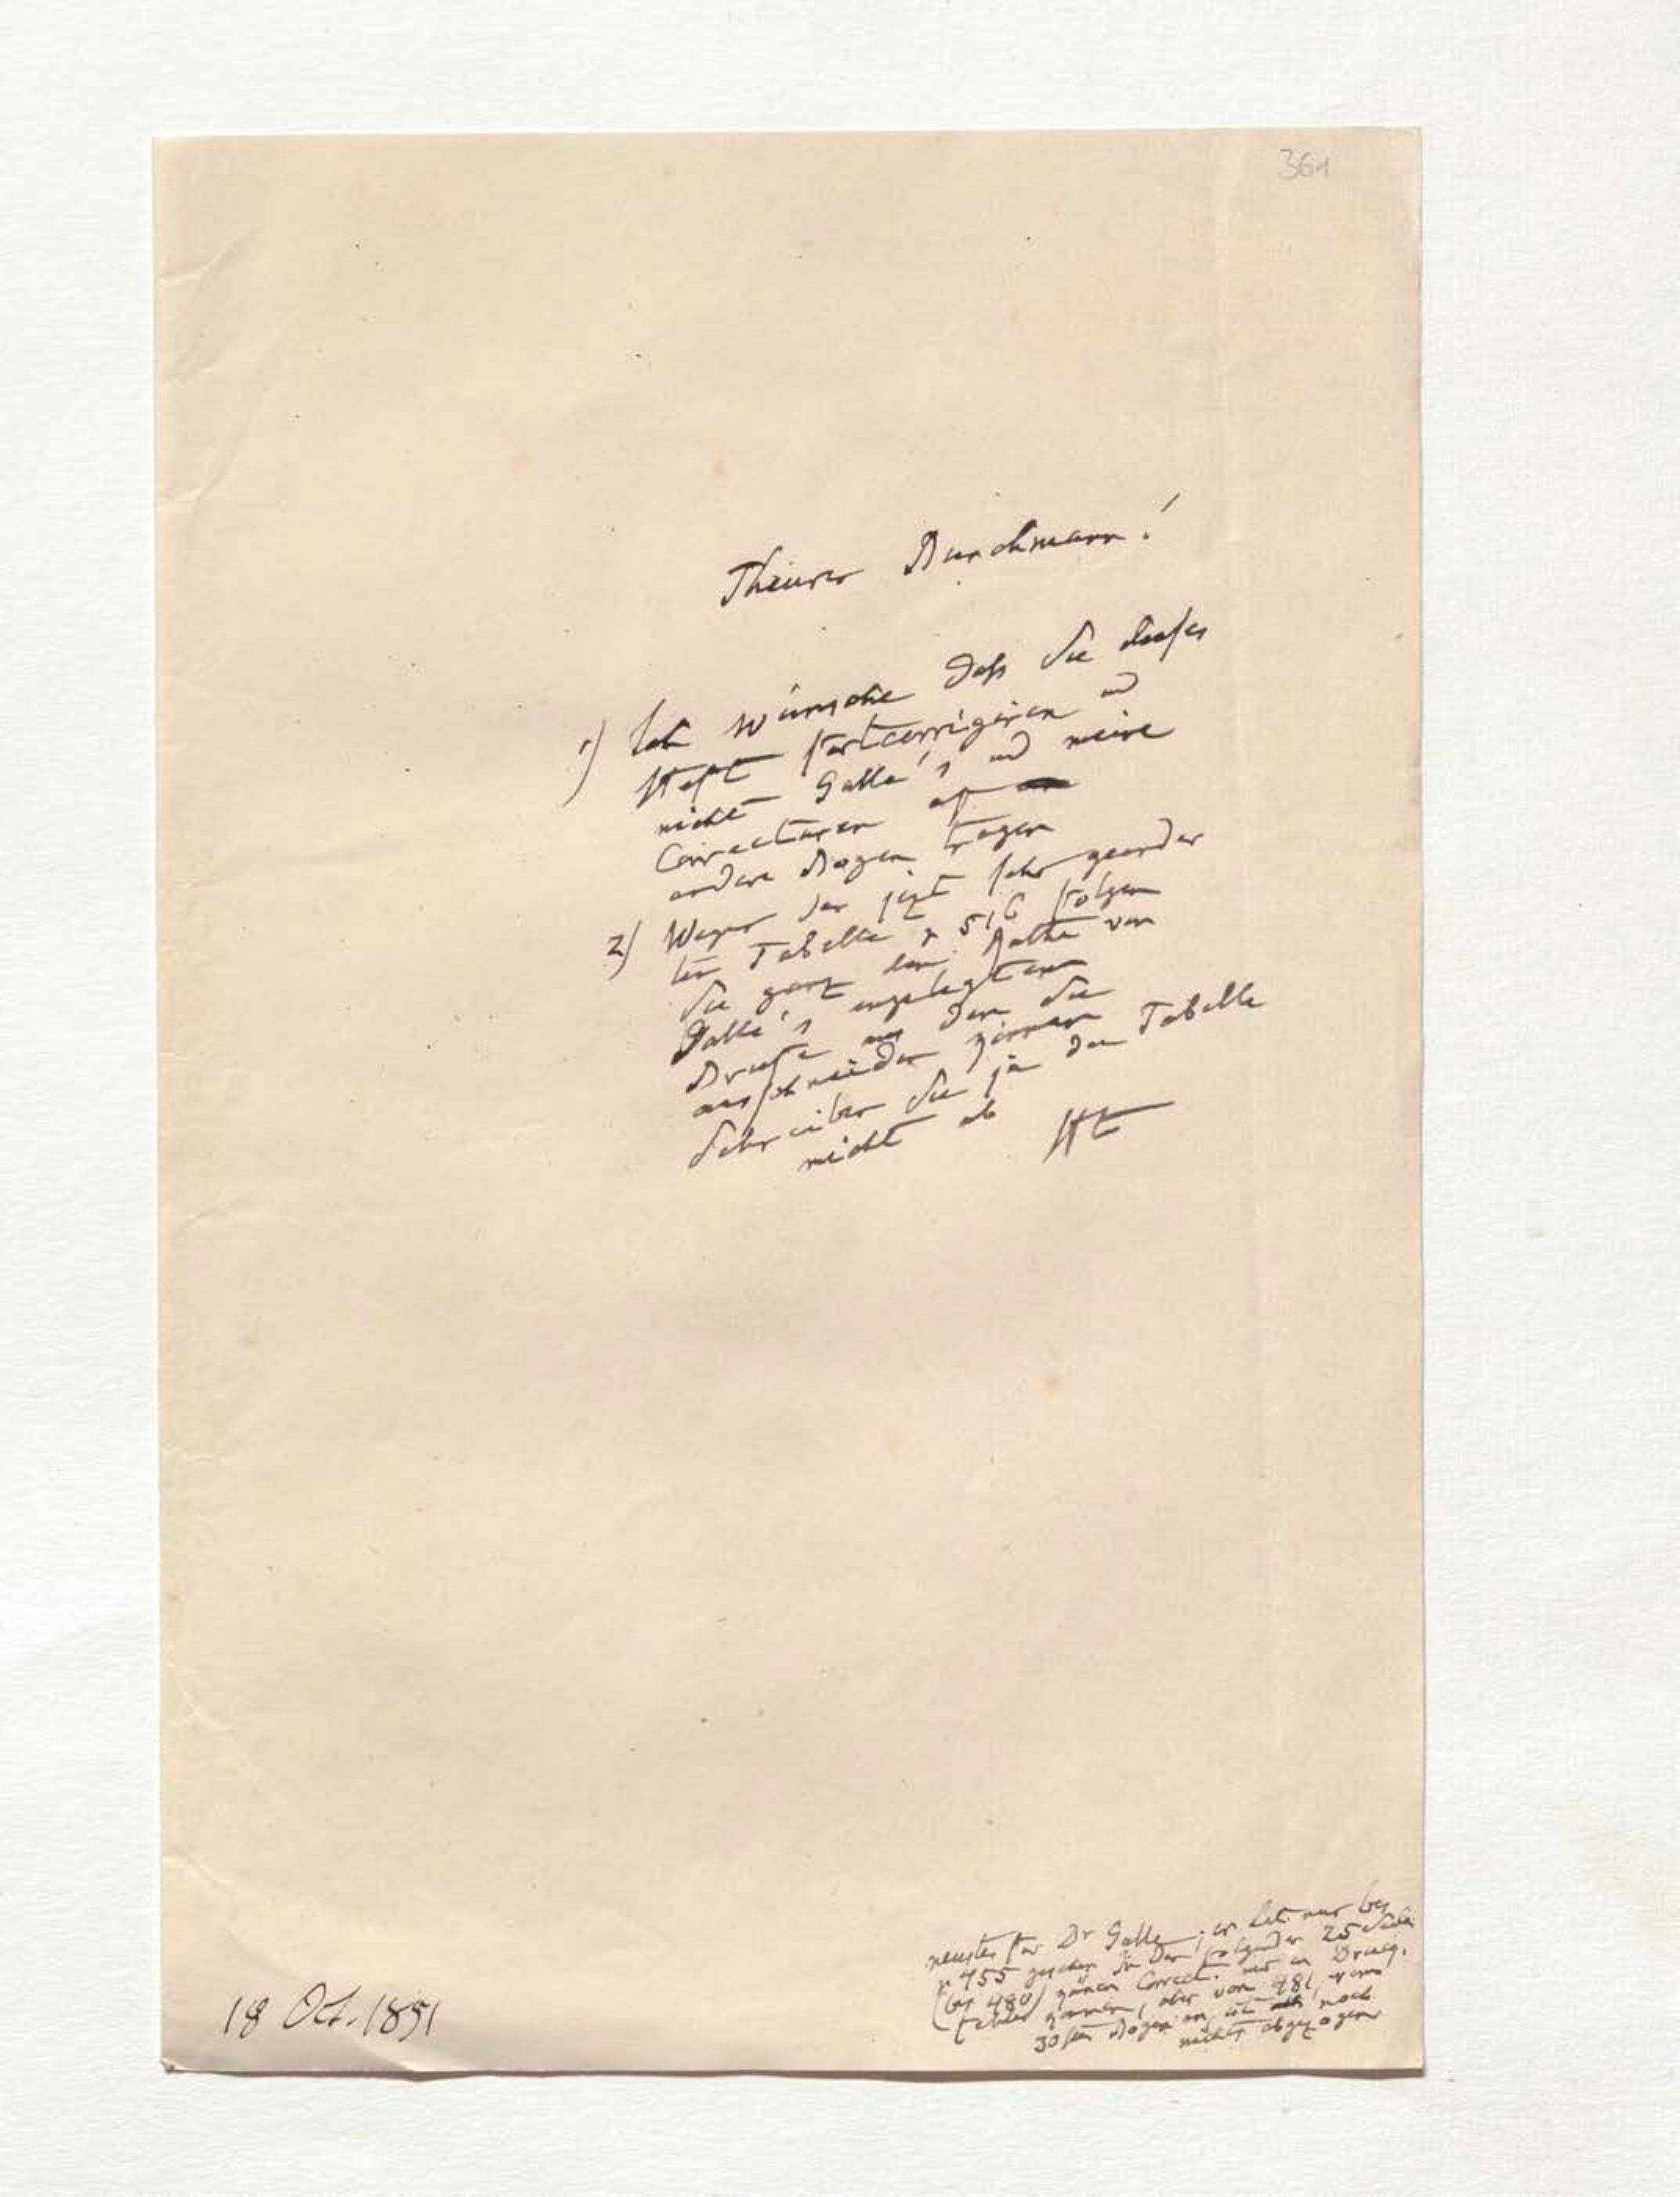 361
Theurer Buschmann!
1) Ich wünsche daß Sie dieses
Heft fortcorrigiren und
nicht Galle's und meine
Correcturen auf
andere Bogen tragen
2) Wegen der jezt sehr geänder
ten Tabelle p 516 folgen
Sie ganz dem Rathe von
Galle's angelegtem
Drucke aus dem Sie
ausschneiden können
Schreiben Sie ja die Tabelle
nicht ab Ht
neustes für Dr Galle; er hat nur bis
p 455 gesehen In den folgenden 25 Seiten
(bis 480) können Correct. und in Druck.
fehler kommen, aber von 481, vom
30sten Bogen an, ist noch
nichts abgezogen
18 Oct. 1851